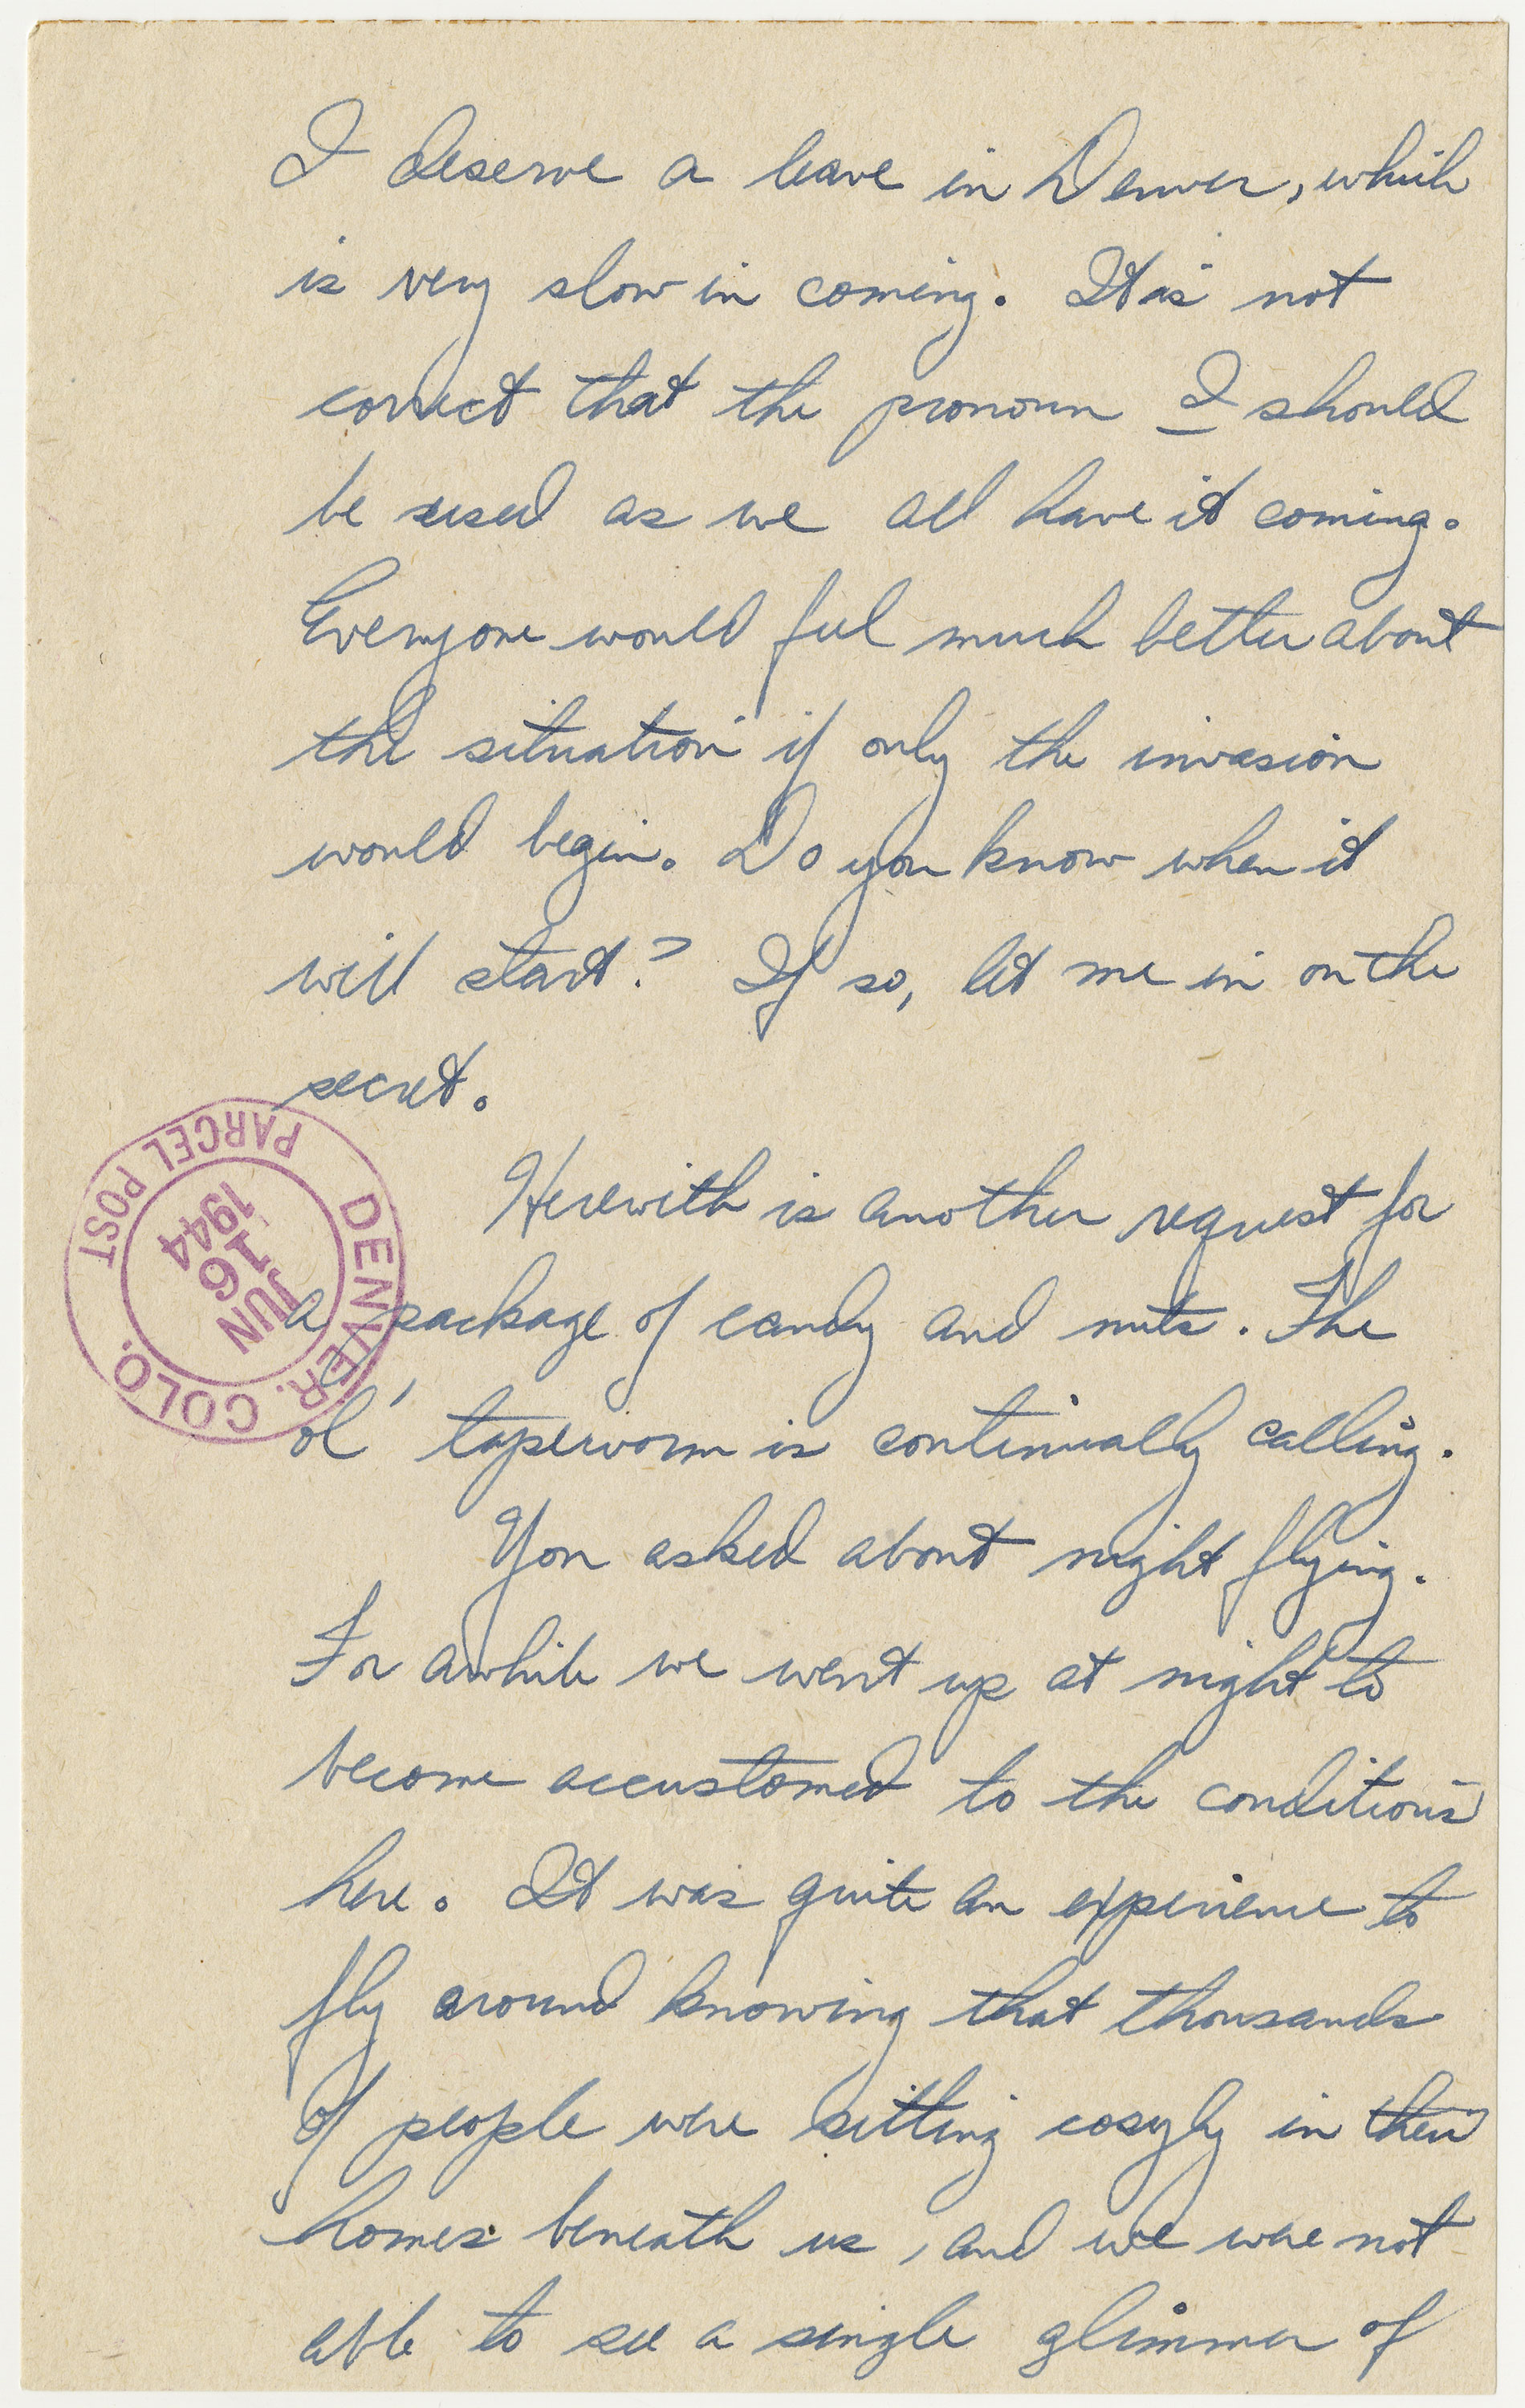 I deserve a leave in Denver, which
is very slow in coming. It is not
correct that the pronoun I should
be used as we all have it coming.
Everyone would feel much better about
the situation if only the invasion
would begin. Do you know when it
will start? If so, let me in on the
secret.
Herewith is another request for
a package of candy and nuts. The
ol' tapeworm is continually calling.
You asked about night flying.
For awhile we went up at night to
become accustomed to the conditions
here. It was quite an experience to
fly around knowing that thousands
of people were sitting cosyly in their
homes beneath us, and we were not
able to see a single glimmer of
DENVER. COLO.
PARCEL POST
JUN
16
1944